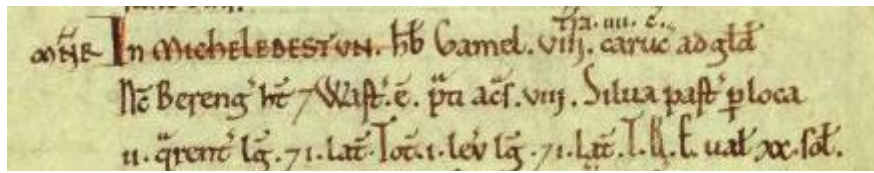 tra. iiii. c̃.
M̃NR In MICHELEBESTVN. hb̃ Gamel. viii. caruc̃ ad gld̃
Nc̃ Bereng' ht̃ ⁊ Wast'. ẽ. p̃ti ac̃s. viii. Silua past' ꝑ loca
ii. qrent' lg̃. ⁊ i. lat̃. Tot̃. i. lev̓ lg̃. ⁊ i. lat̃. T. R. E. ual̃ xx. sol̃.